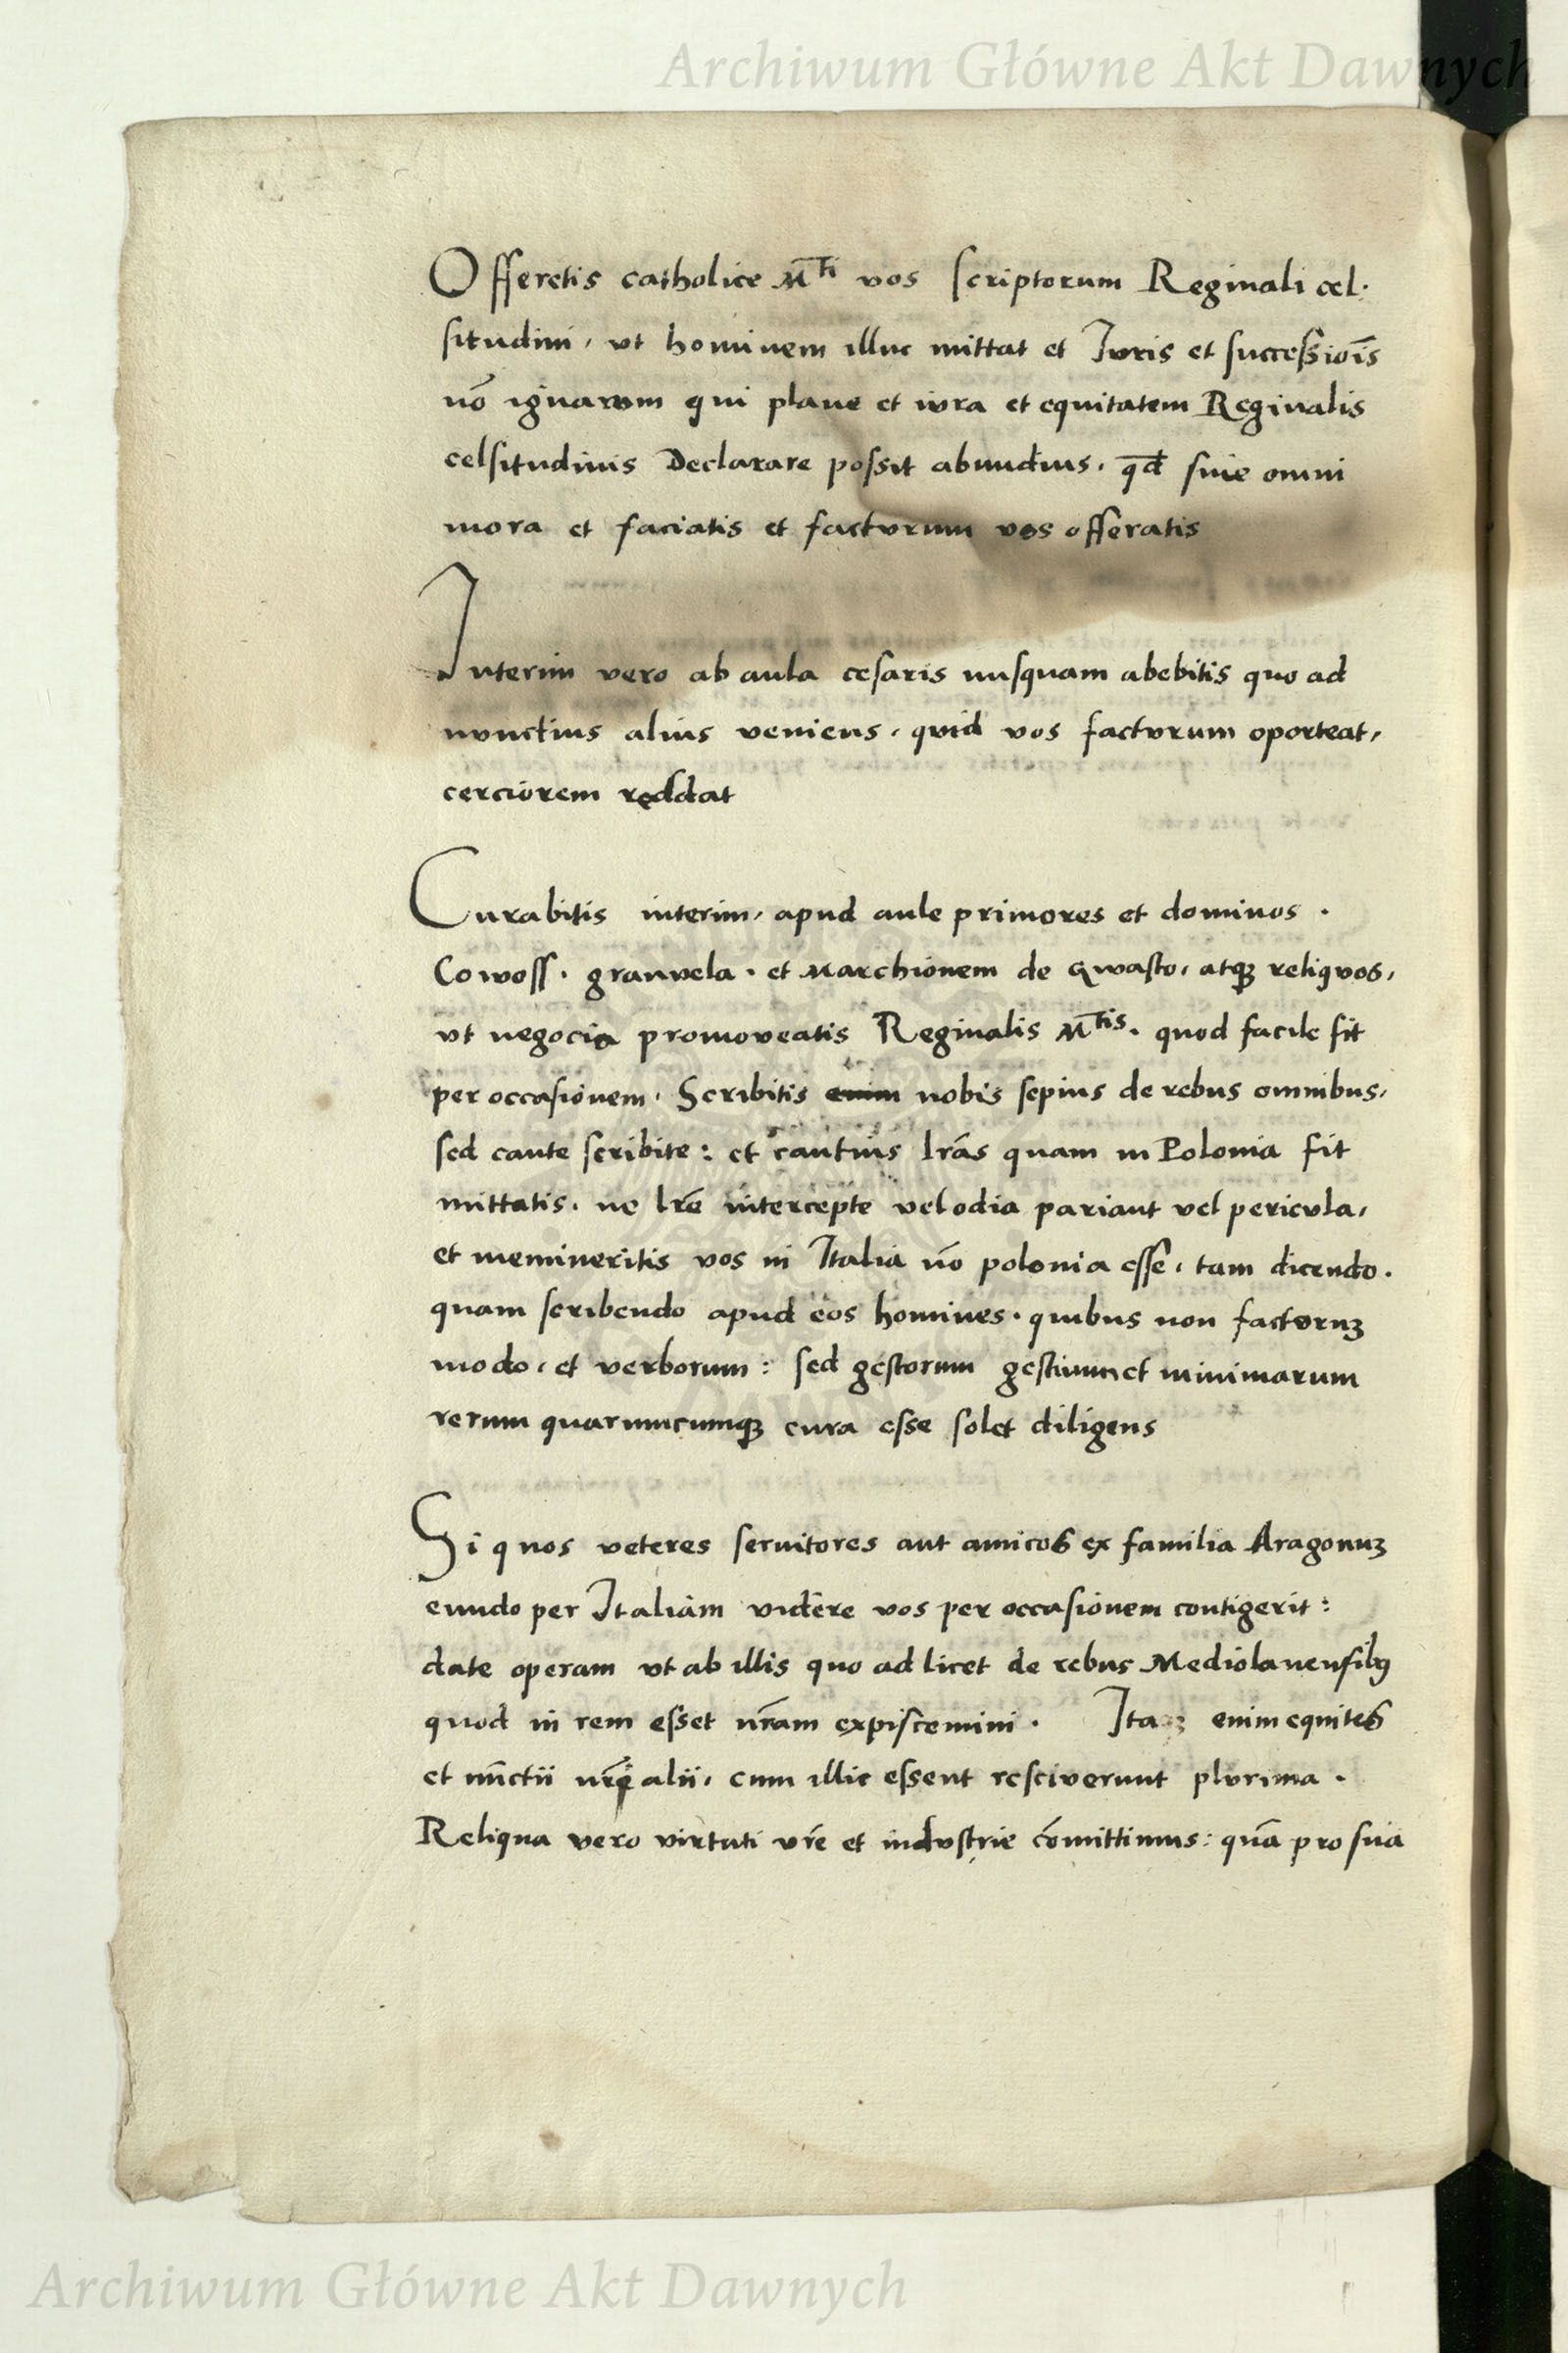 Archiwum Główne Akt Dawnych
Offeretis catholice M̅ti vos scriptorum Reginali cel·
situdini, ut hominem illuc mittat et Iuris et successiois̅
nō ignarum qui plane et iura et equitatem Reginalis
celsitudinis Declarare possit abundius, qd̅ sine omni
mora et faciatis et facturum vos offeratis
Interim vero ab aula cesaris nusquam abebitis quo ad
nunctius alius veniens, quid vos facturum oporteat,
cerciorem reddat
Curabitis interim, apud aule primores et dominos ·
Cowoss · granvela · et Marchionem de Gwasto, atqꝫ reliquos,
ut negocia promoveatis Reginalis M̅tis · quod facile fit
per occasionem, Scribitis enim nobis sepius de rebus omnibus,
sed caute scribite : et cautius lrās quam in Polonia fit
mittatis, ne lrē intercepte vel odia pariant vel pericula,
et memineritis vos in Italia nō polonia esse, tam dicendo ·
quam scribendo apud eos homines · quibus non factoruꝫ
modo, et verborum : sed gestorum gestiumet minimarum
rerum quarumcumqꝫ cura esse solet diligens
Si quos veteres servitores aut amicos ex familia Aragonuꝫ
eundo per Italiam videre vos per occasionem contigerit :
date operam ut ab illis quo ad licet de rebus Mediolanensibꝰ
quod in rem esset nr̄am expiscemini · Ita enim equites
et nūctii nrē alii, cum illic essent resciverunt plurima ·
Reliqua vero virtuti vrē et industrie cōmittimus : quā pro sua
Archiwum Główne Akt Dawnych